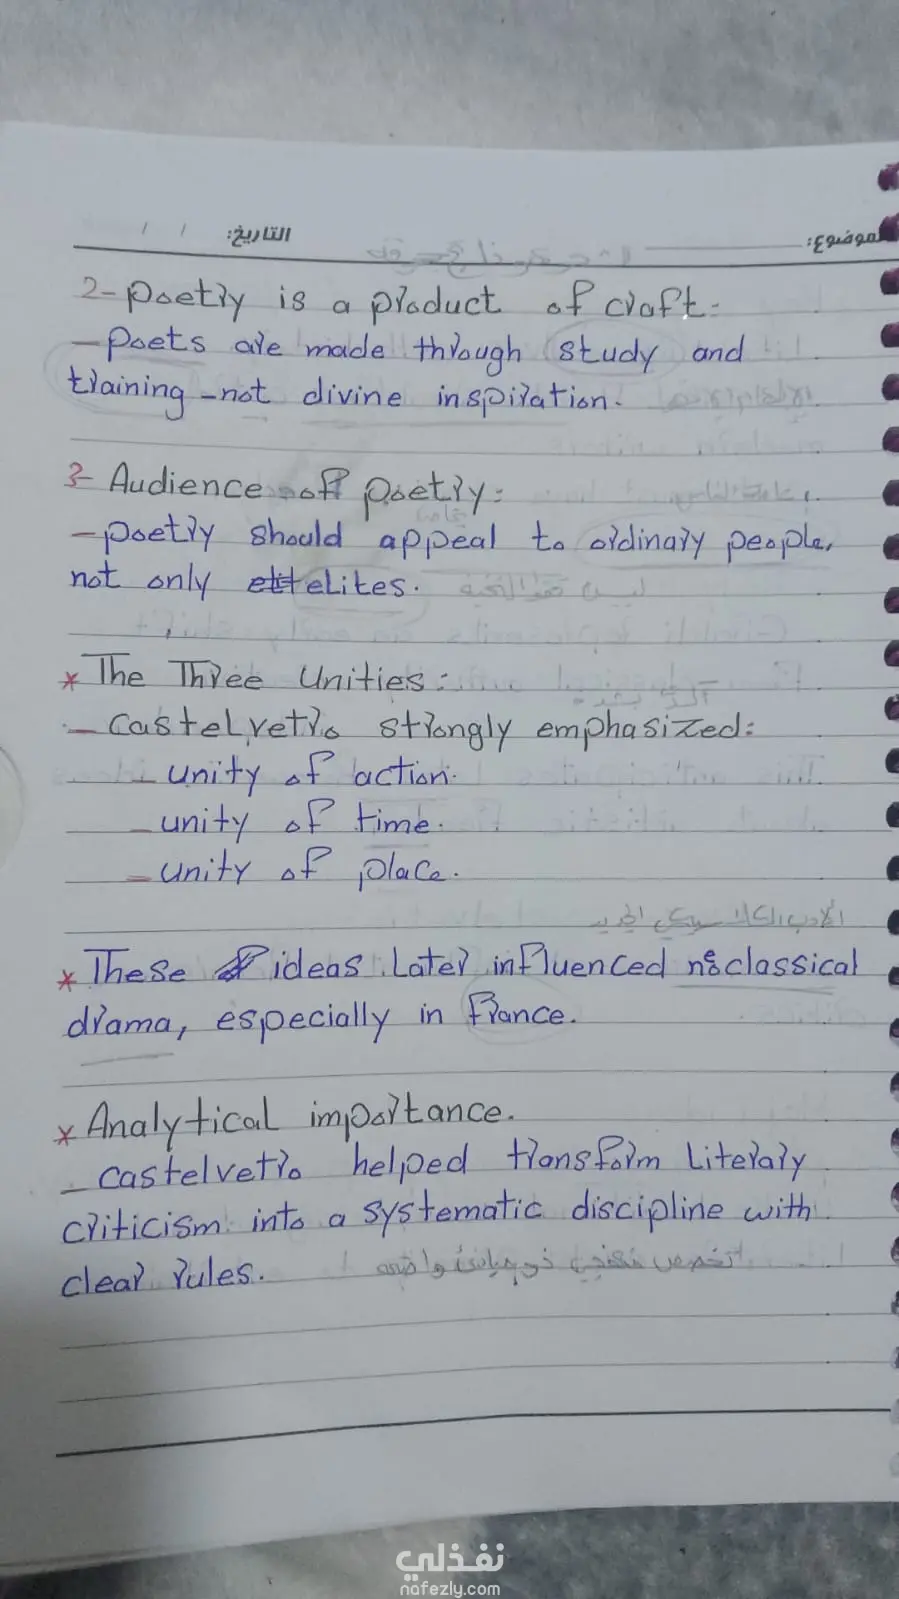 الموضوع: التاريخ: / /
2- Poetry is a product of craft:
- Poets are made through study and
training - not divine inspiration.
3- Audience of poetry:
- poetry should appeal to ordinary people,
not only elites. ليس فقط النخبة
* The Three Unities:
- Castelvetro strongly emphasized:
- unity of action.
- unity of time.
- unity of place.
الأدب الكلاسيكي الجديد
* These ideas later influenced neoclassical
drama, especially in France.
* Analytical importance.
- Castelvetro helped transform literary
criticism into a systematic discipline with
clear rules. تخصص منهجي ذو مبادئ واضحه
نفذلي
nafezly.com